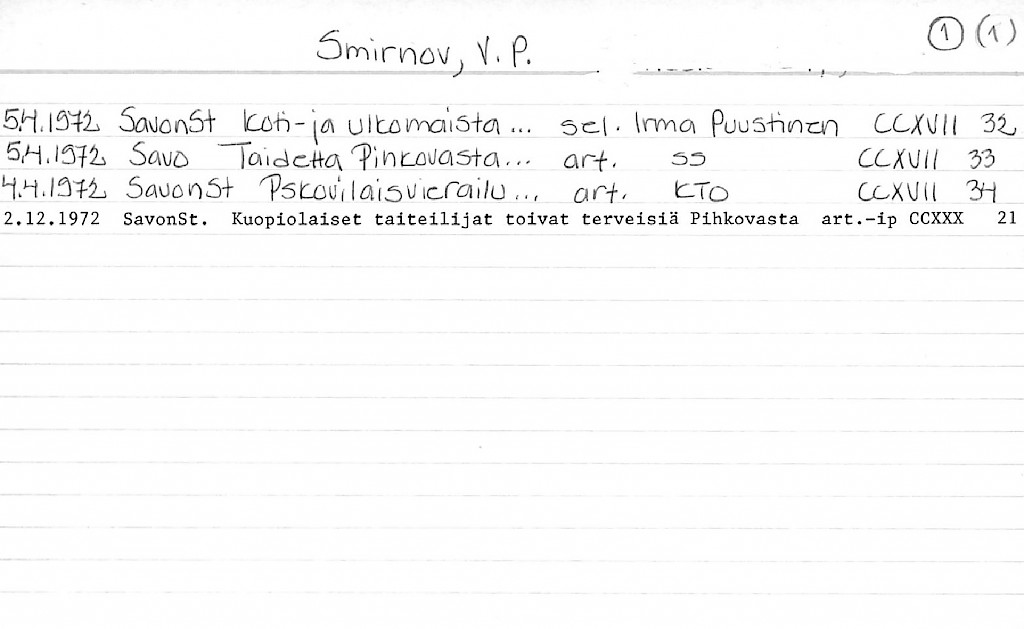 Smirnov, V. P. 1 (1)
5.4.1972 SavonSt Koti-ja ulkomaista... sel. Irma Puustinen CCXVII 32
5.4.1972 Savo Taidetta Pinkovasta... art. ss CCXVII 33
4.4.1972 SavonSt Pskovilaisvierailu... art. KTO CCXVII 34
2.12.1972 SavonSt. Kuopiolaiset taiteilijat toivat terveisiä Pihkovasta art.-ip CCXXX 21